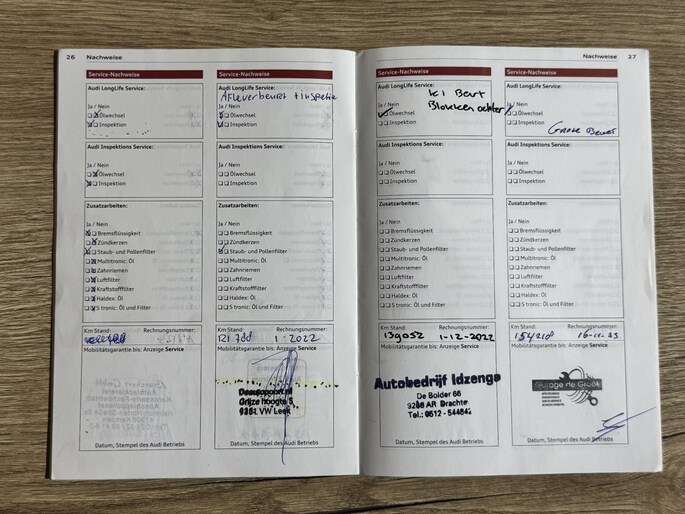 26 Nachweise
Service-Nachweise
Audi LongLife Service:
Ja / Nein
Ölwechsel
Inspektion
Audi Inspektions Service:
Ja / Nein
Ölwechsel
Inspektion
Zusatzarbeiten:
Ja / Nein
Bremsflüssigkeit
Zündkerzen
Staub- und Pollenfilter
Multitronic: Öl
Zahnriemen
Luftfilter
Kraftstofffilter
Haldex: Öl
S tronic: Öl und Filter
Km Stand: Rechnungsnummer:
Mobilitätsgarantie bis: Anzeige Service
Datum, Stempel des Audi Betriebs
Service-Nachweise
Audi LongLife Service:
Afleverbeurt + inspectie
Ja / Nein
Ölwechsel
Inspektion
Audi Inspektions Service:
Ja / Nein
Ölwechsel
Inspektion
Zusatzarbeiten:
Ja / Nein
Bremsflüssigkeit
Zündkerzen
Staub- und Pollenfilter
Multitronic: Öl
Zahnriemen
Luftfilter
Kraftstofffilter
Haldex: Öl
S tronic: Öl und Filter
Km Stand: Rechnungsnummer:
1-2022
Mobilitätsgarantie bis: Anzeige Service
Grijze hoogte 5
9351 VW Leek
Datum, Stempel des Audi Betriebs
Nachweise 27
Service-Nachweise
Audi LongLife Service:
Kl Beurt
Ja / Nein
Blokken achter
Ölwechsel
Inspektion
Audi Inspektions Service:
Ja / Nein
Ölwechsel
Inspektion
Zusatzarbeiten:
Ja / Nein
Bremsflüssigkeit
Zündkerzen
Staub- und Pollenfilter
Multitronic: Öl
Zahnriemen
Luftfilter
Kraftstofffilter
Haldex: Öl
S tronic: Öl und Filter
Km Stand: Rechnungsnummer:
139052 1-12-2022
Mobilitätsgarantie bis: Anzeige Service
Autobedrijf Idzenga
De Bolder 66
9206 AR Drachten
Tel.: 0512 - 544842
Datum, Stempel des Audi Betriebs
Service-Nachweise
Audi LongLife Service:
Ja / Nein
Ölwechsel
Inspektion
Grote Beurt
Audi Inspektions Service:
Ja / Nein
Ölwechsel
Inspektion
Zusatzarbeiten:
Ja / Nein
Bremsflüssigkeit
Zündkerzen
Staub- und Pollenfilter
Multitronic: Öl
Zahnriemen
Luftfilter
Kraftstofffilter
Haldex: Öl
S tronic: Öl und Filter
Km Stand: Rechnungsnummer:
16-11-23
Mobilitätsgarantie bis: Anzeige Service
Garage de Groek
Datum, Stempel des Audi Betriebs